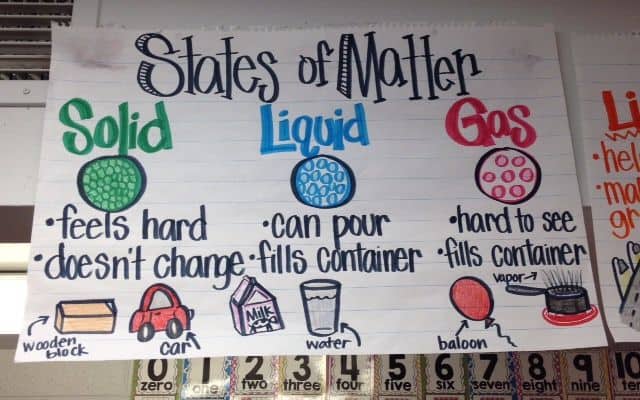 States of Matter
Solid
•feels hard
•doesn't change
wooden block
car
Liquid
•can pour
•fills container
Milk
water
Gas
•hard to see
•fills container
vapor
baloon
Li
•hel
•ma
gr
0 1 2 3 4 5 6 7 8 9 10
zero one two three four five six seven eight nine ten